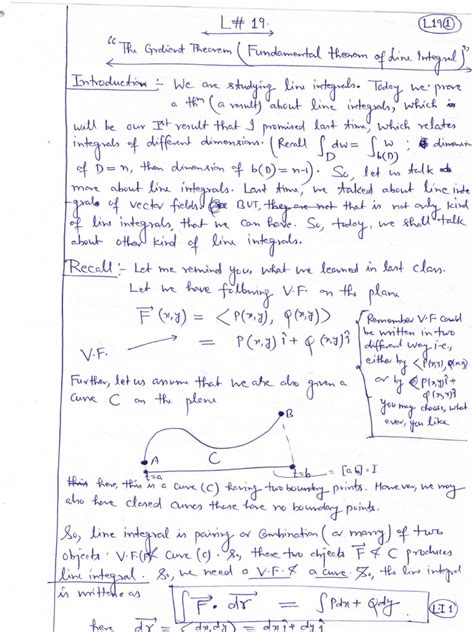 L# 19.
L19①
"The Grdient Theorem (Fundamental theorem of Line Integral)"
Introduction :- We are studying line integrals. Today we prove
a thm (a result) about line integrals, which is
will be our Ist result that I promised last time, which relates
integrals of different dimensions. (Recall ∫_D dw = ∫_{b(D)} w ; & dimension
of D=n, then dimension of b(D)=n-1). So, let us talk
more about line integrals. Last time, we stalked about line inte
grals of vector fields. BUT, they are not that is not only kind
of line integrals, that we can have. So, today, we shall talk
about other kind of line integrals.
Recall :- Let me remind you, what we learned in last class.
Let we have following V.F. on the plane
F⃗(x,y) = <P(x,y), Q(x,y)>
= P(x,y) î + Q(x,y) ĵ
V.F.
Remember V.F could
be written in two
different way i.e.,
either by <P(x,y), Q(x,y)>
or by P(x,y) î +
Q(x,y) ĵ
you may choose, what
ever, you like
Further, let us assume that we are also given a
curve C on the plane
B
A
C
t=a
t=b
= [a,b] = I
this here, this is a curve (C) having two boundary points. However, we may
also have closed curves those have no boundary points.
So, line integral is pairing or Combination (or marry) of two
objects: V.F(F) & curve (C). So, these two objects F⃗ & C produces
line integral. So, we need a V.F. & a curve, the line integral
is written as
∫ F⃗ . dr⃗ = ∫ Pdx + Qdy
LI 1
here dr⃗ = <dx, dy> = dx î + dy ĵ